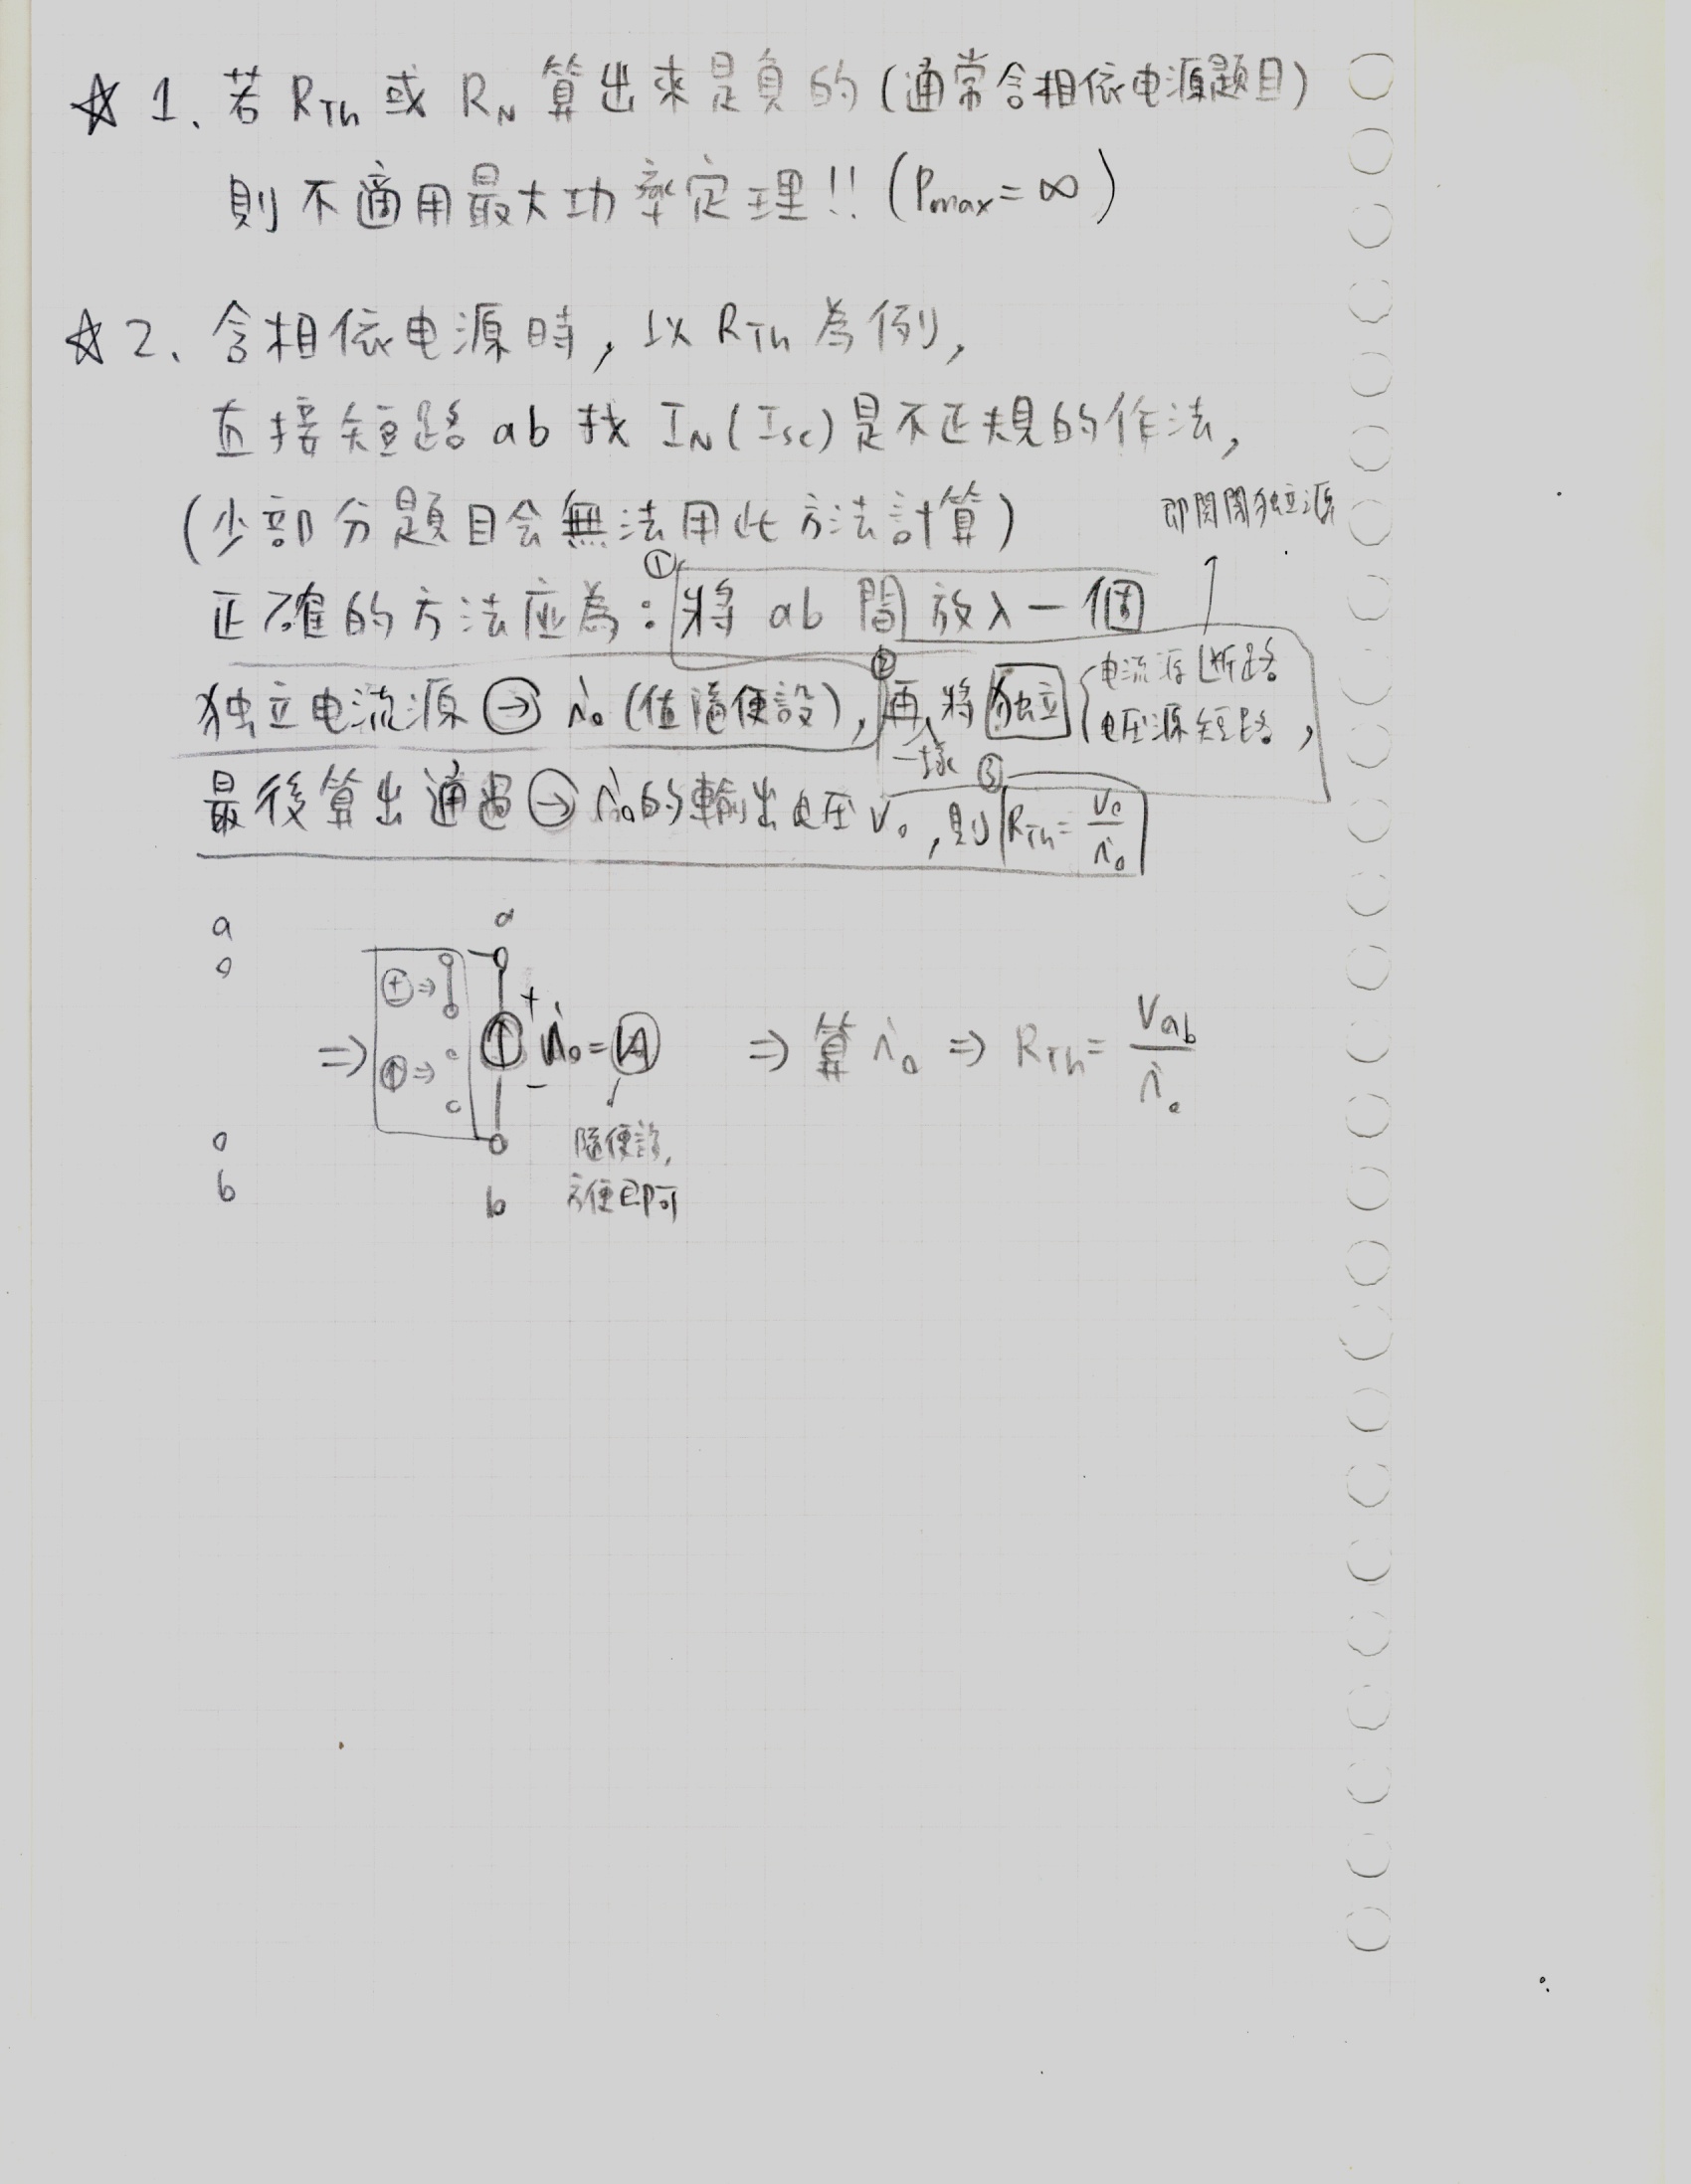 ☆ 1. 若 RTh 或 RN 算出來是負的 (通常含相依电源題目)
則不適用最大功率定理!! (Pmax = ∞)
☆ 2. 含相依电源時, 以 RTh 為例,
直接短路 ab 找 IN (Isc) 是不正規的作法,
(少部分題目会無法用此方法計算)
即関閉独立源
正確的方法应為: ① 將 ab 間放入一個
独立电流源 → i₀ (值隨便設), ② 再將 独立 { 电流源断路
电压源短路,
一樣
最後算出通過 → i₀ 的輸出电压 V₀, 則 ③ RTh = V₀/i₀
a
a
+
⇒ + ⇒
↑ ⇒
↑ i₀ = 1A ⇒ 算 i₀ ⇒ RTh = Vab/i₀
−
隨便設,
方便即可
b
b